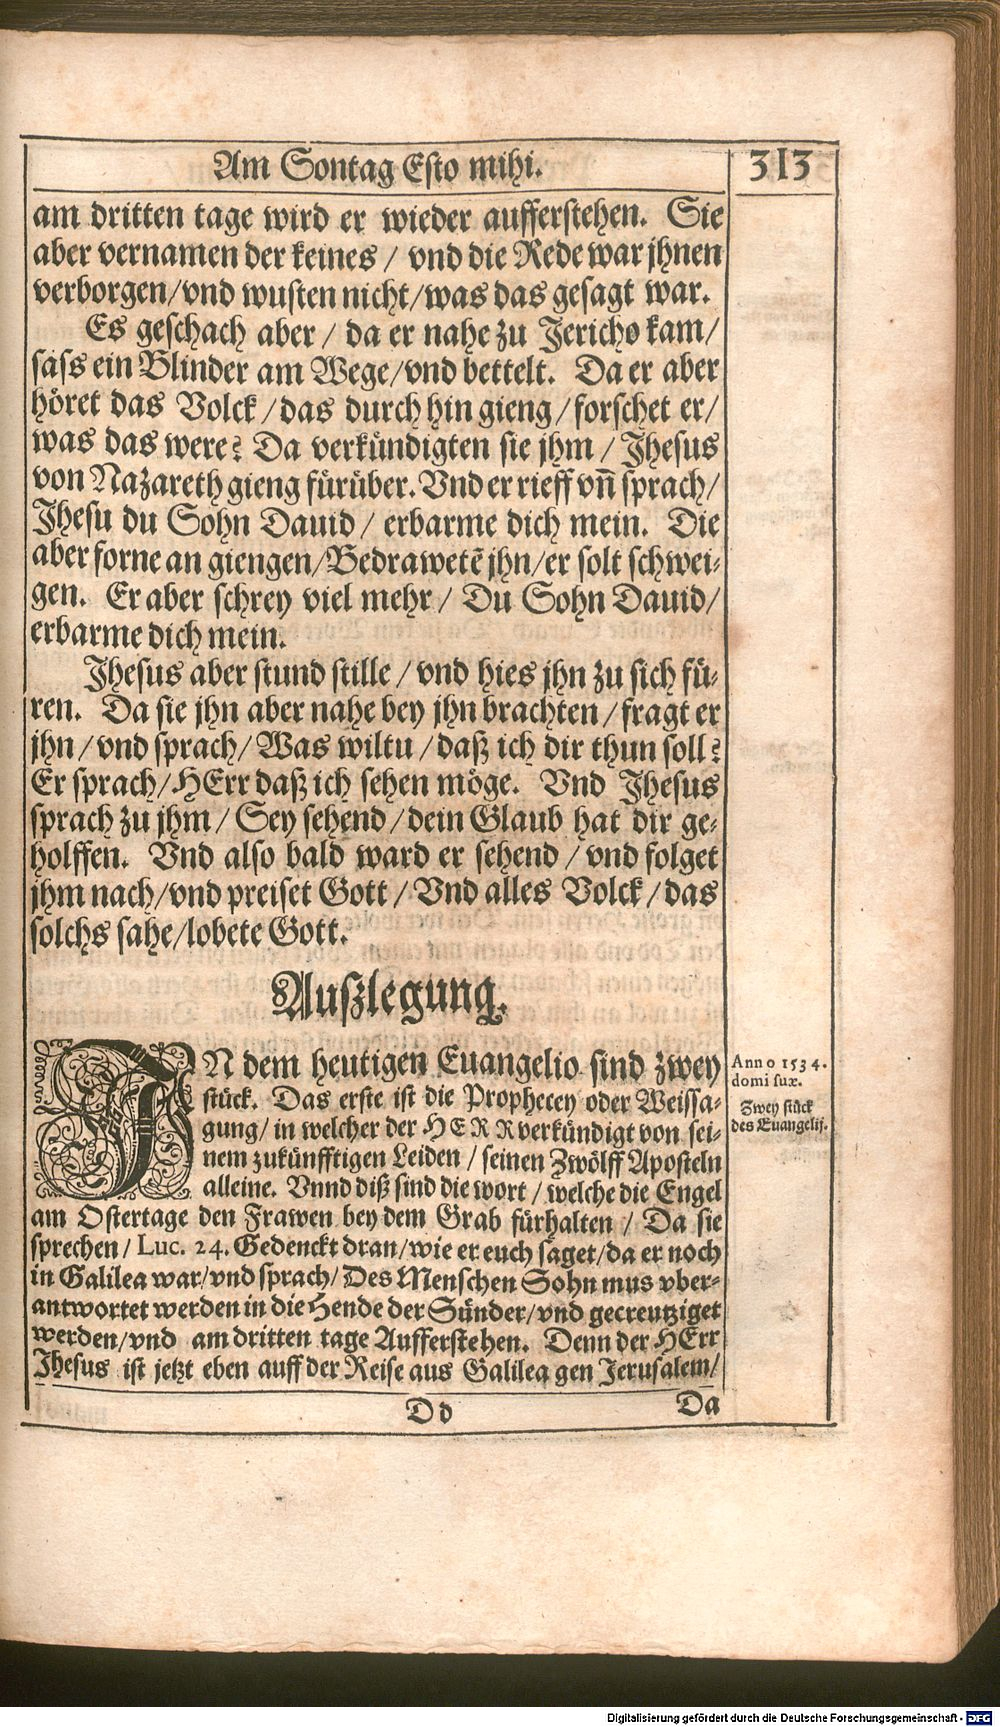 Am Sontag Esto mihi.
313
am dritten tage wird er wieder aufferstehen. Sie
aber vernamen der keines / vnd die Rede war jhnen
verborgen/vnd wusten nicht/was das gesagt war.
Es geschach aber / da er nahe zu Jericho kam/
sass ein Blinder am Wege/vnd bettelt. Da er aber
höret das Volck / das durch hin gieng / forschet er/
was das were? Da verkündigten sie jhm / Jhesus
von Nazareth gieng fürüber. Vnd er rieff vñ sprach/
Jhesu du Sohn Dauid / erbarme dich mein. Die
aber forne an giengen/Bedrawetē jhn/er solt schwei-
gen. Er aber schrey viel mehr / Du Sohn Dauid/
erbarme dich mein.
Jhesus aber stund stille / vnd hies jhn zu sich fü-
ren. Da sie jhn aber nahe bey jhn brachten / fragt er
jhn / vnd sprach/ Was wiltu / daß ich dir thun soll?
Er sprach/HErr daß ich sehen möge. Vnd Jhesus
sprach zu jhm / Sey sehend / dein Glaub hat dir ge-
holffen. Vnd also bald ward er sehend / vnd folget
jhm nach/vnd preiset Gott / Vnd alles Volck / das
solchs sahe/lobete Gott.
Außlegung.
JN dem heutigen Euangelio sind zwey
stück. Das erste ist die Prophecey oder Weissa-
gung/ in welcher der HERR verkündigt von sei-
nem zukünfftigen Leiden / seinen Zwölff Aposteln
alleine. Vnnd diß sind die wort / welche die Engel
am Ostertage den Frawen bey dem Grab fürhalten / Da sie
sprechen / Luc. 24. Gedenckt dran/wie er euch saget/da er noch
in Galilea war/vnd sprach/ Des Menschen Sohn mus vber-
antwortet werden in die Hende der Sünder/vnd gecreutziget
werden/vnd am dritten tage Aufferstehen. Denn der HErr
Jhesus ist jetzt eben auff der Reise aus Galilea gen Jerusalem/
Anno 1534.
domi suæ.
Zwey stück
des Euangelij.
Dd
Da
Digitalisierung gefördert durch die Deutsche Forschungsgemeinschaft - DFG